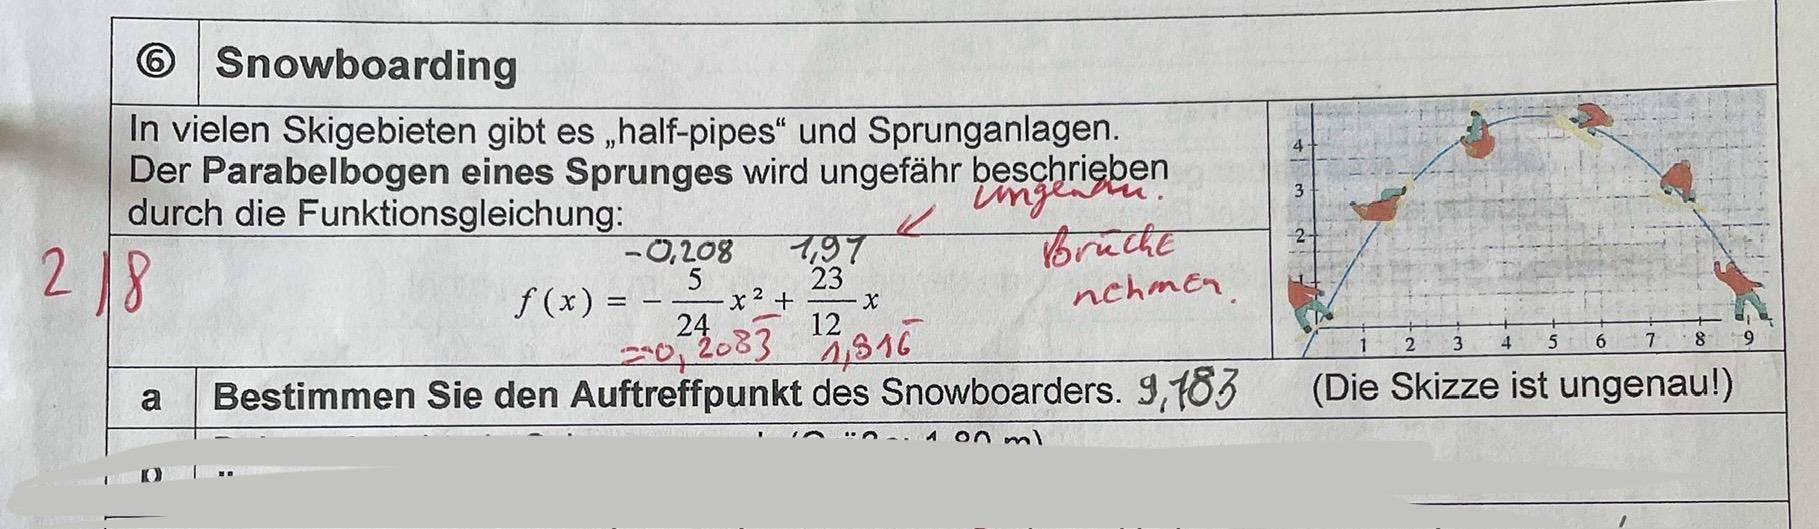 ⑥ Snowboarding
In vielen Skigebieten gibt es „half-pipes“ und Sprunganlagen.
Der Parabelbogen eines Sprunges wird ungefähr beschrieben
ungenau.
durch die Funktionsgleichung:
2/8
-0,208 1,91
Brüche
nehmen.
f(x) = - 5/24 x² + 23/12 x
=-0,2083̅ 1,916̅
4
3
2
1 2 3 4 5 6 7 8 9
a Bestimmen Sie den Auftreffpunkt des Snowboarders. 9,183 (Die Skizze ist ungenau!)